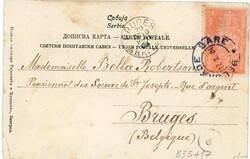 Србија
Serbie
ДОПИСНА КАРТА — CARTE POSTALE
СВЕТСКИ ПОШТАНСКИ САВЕЗ — UNION POSTALE UNIVERSELLE
BRUGES
GARE
Mademoiselle Bella Robertson
Pensionnat des Soeurs de St Joseph - Rue d'argent
Bruges
(Belgique)
B35417